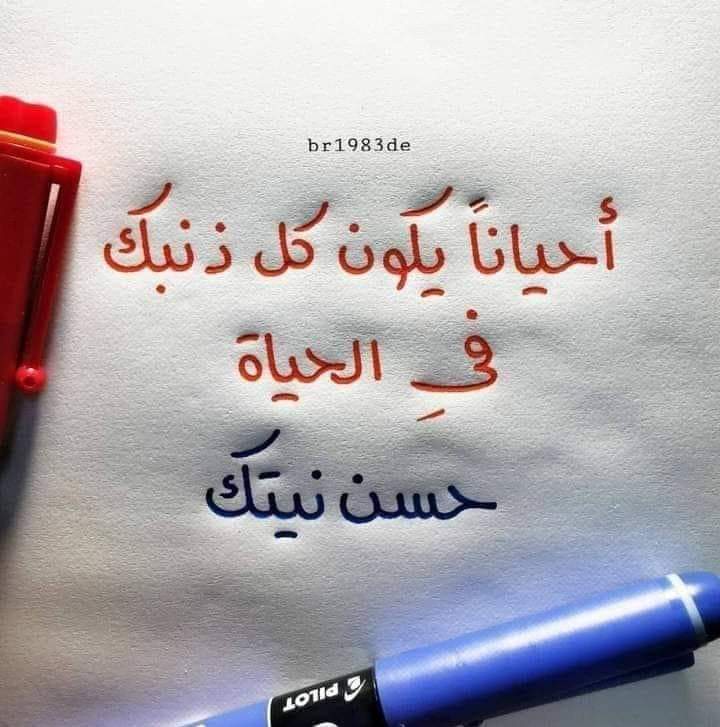 br1983de
أحياناً يكون كل ذنبك
فيِ الحياة
حسن نيتك
PILOT